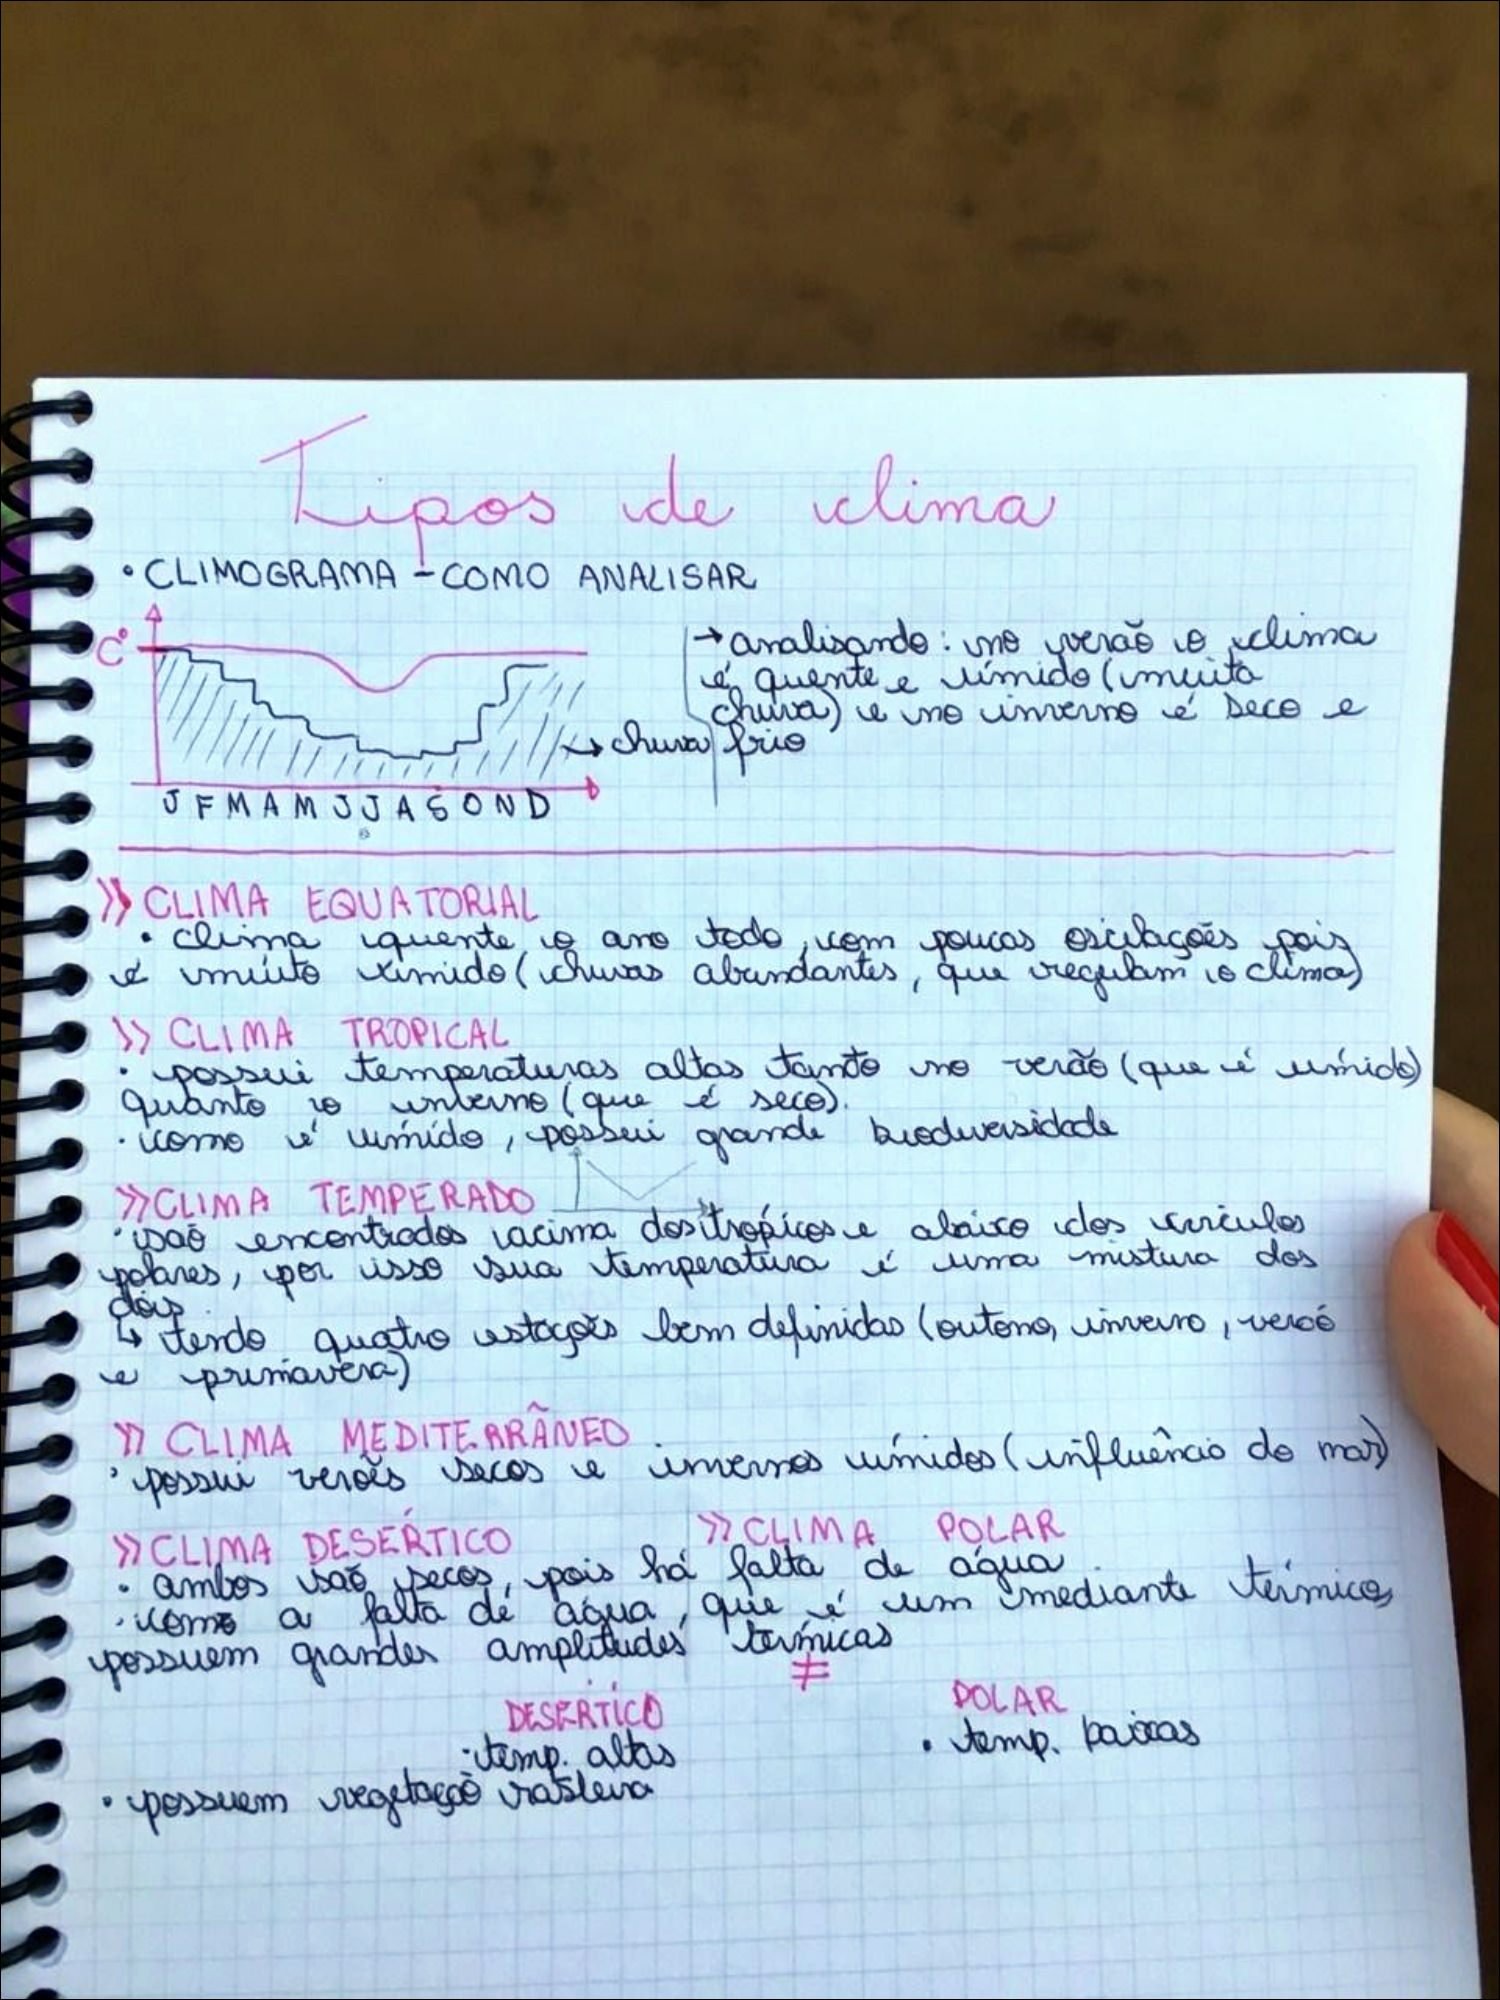 Tipos de clima
• CLIMOGRAMA - COMO ANALISAR
C°
→ analisando: no verão o clima
é quente e úmido (muita
chuva) e no inverno é seco e
frio
→ chuva
J F M A M J J A S O N D
» CLIMA EQUATORIAL
• clima quente o ano todo, com poucas oscilações pois
é muito úmido (chuvas abundantes, que regulam o clima)
» CLIMA TROPICAL
• possui temperaturas altas tanto no verão (que é úmido)
quanto o inverno (que é seco).
• como é úmido, possui grande biodiversidade
» CLIMA TEMPERADO
• são encontrados acima dos trópicos e abaixo dos círculos
polares, por isso sua temperatura é uma mistura dos
dois.
↳ tendo quatro estações bem definidas (outono, inverno, verão
e primavera)
» CLIMA MEDITERRÂNEO
• possui verões secos e invernos úmidos (influência do mar)
» CLIMA DESÉRTICO » CLIMA POLAR
• ambos são secos, pois há falta de água
• como a falta de água, que é um mediante térmico,
possuem grandes amplitudes térmicas
≠
DESÉRTICO POLAR
• temp. altas • temp. baixas
• possuem vegetação rasteira